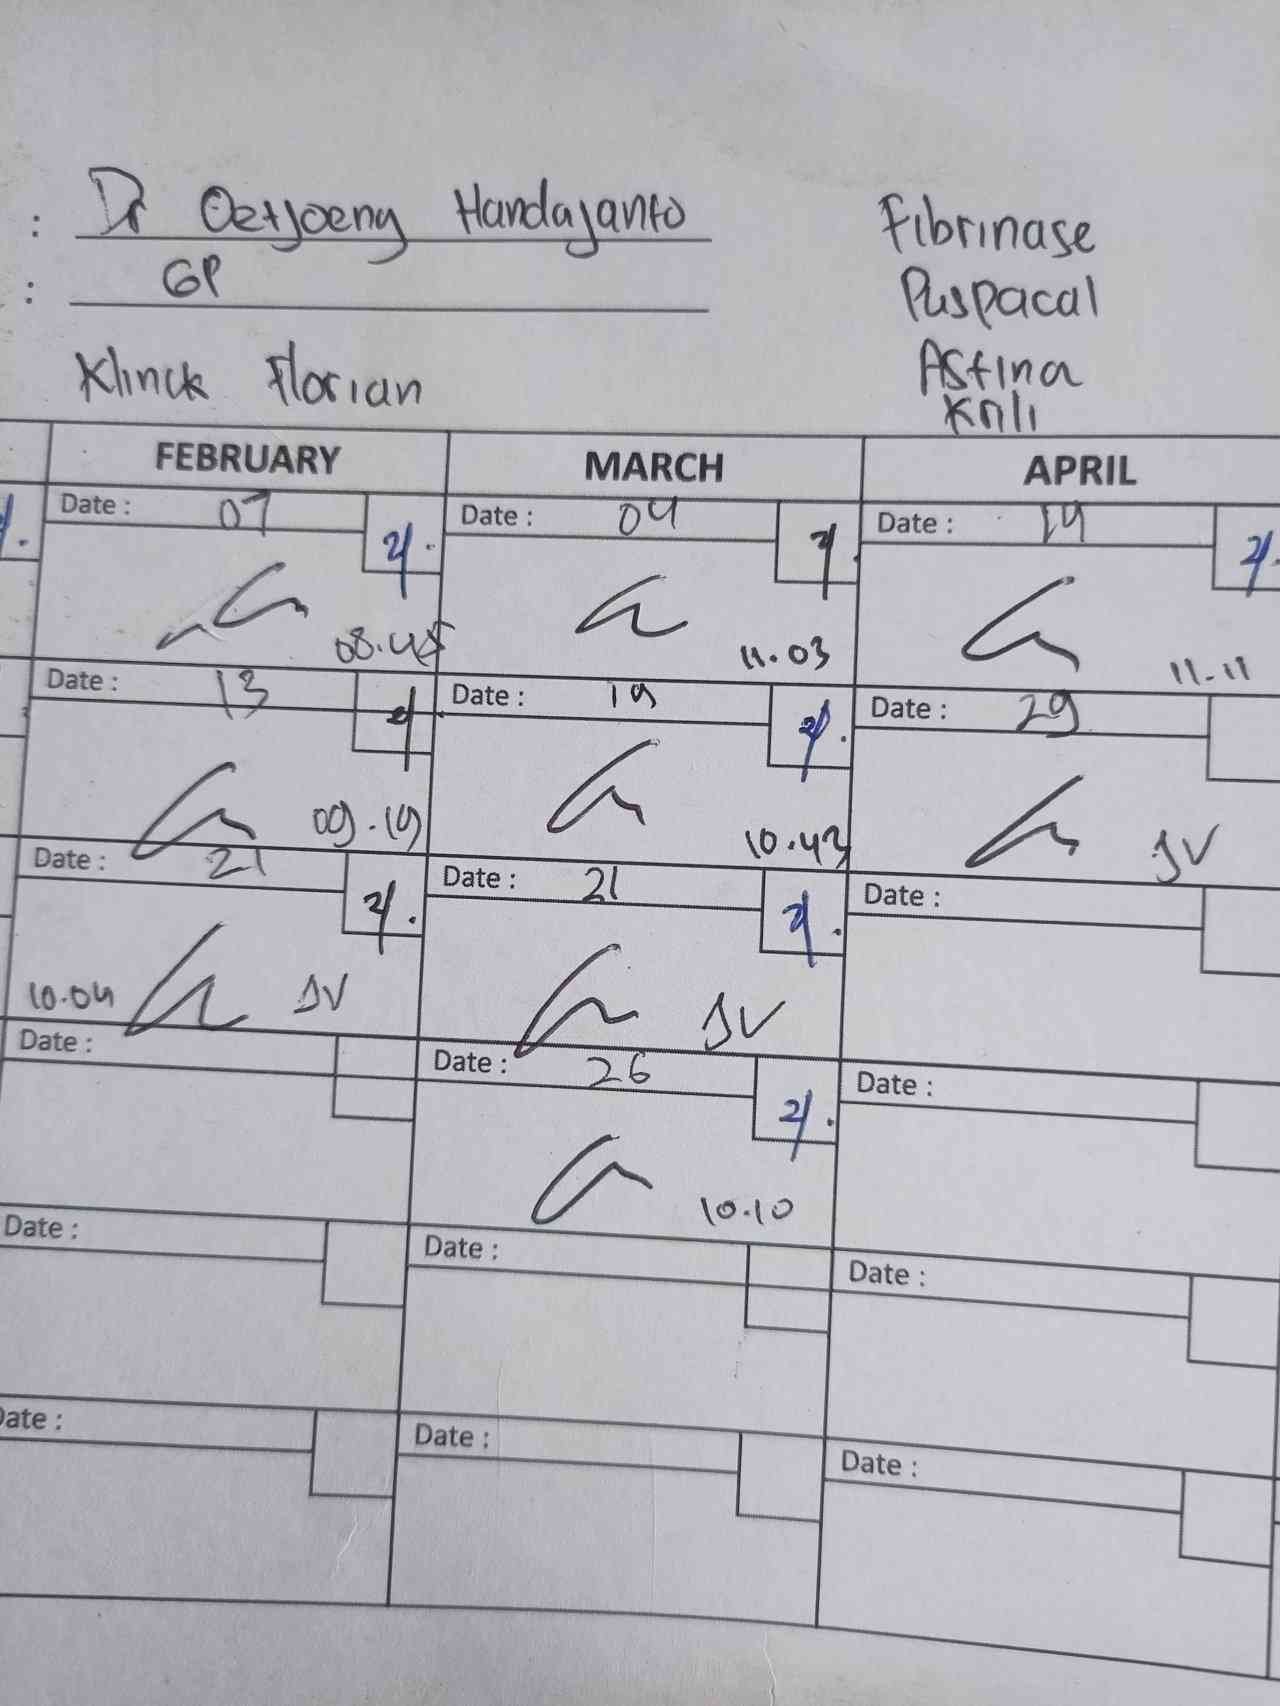 : Dr Oetjoeng Handajanto
: GP
Klinck Florian
Fibrinase
Puspacal
Astina
Krili
FEBRUARY MARCH APRIL
Date : 07 Date : 04 Date : 14
08.45 11.03 11.11
Date : 13 Date : 19 Date : 29
09.19 10.43 JV
Date : 21 Date : 21 Date :
10.04 JV JV
Date : Date : 26 Date :
10.10
Date : Date : Date :
Date : Date : Date :